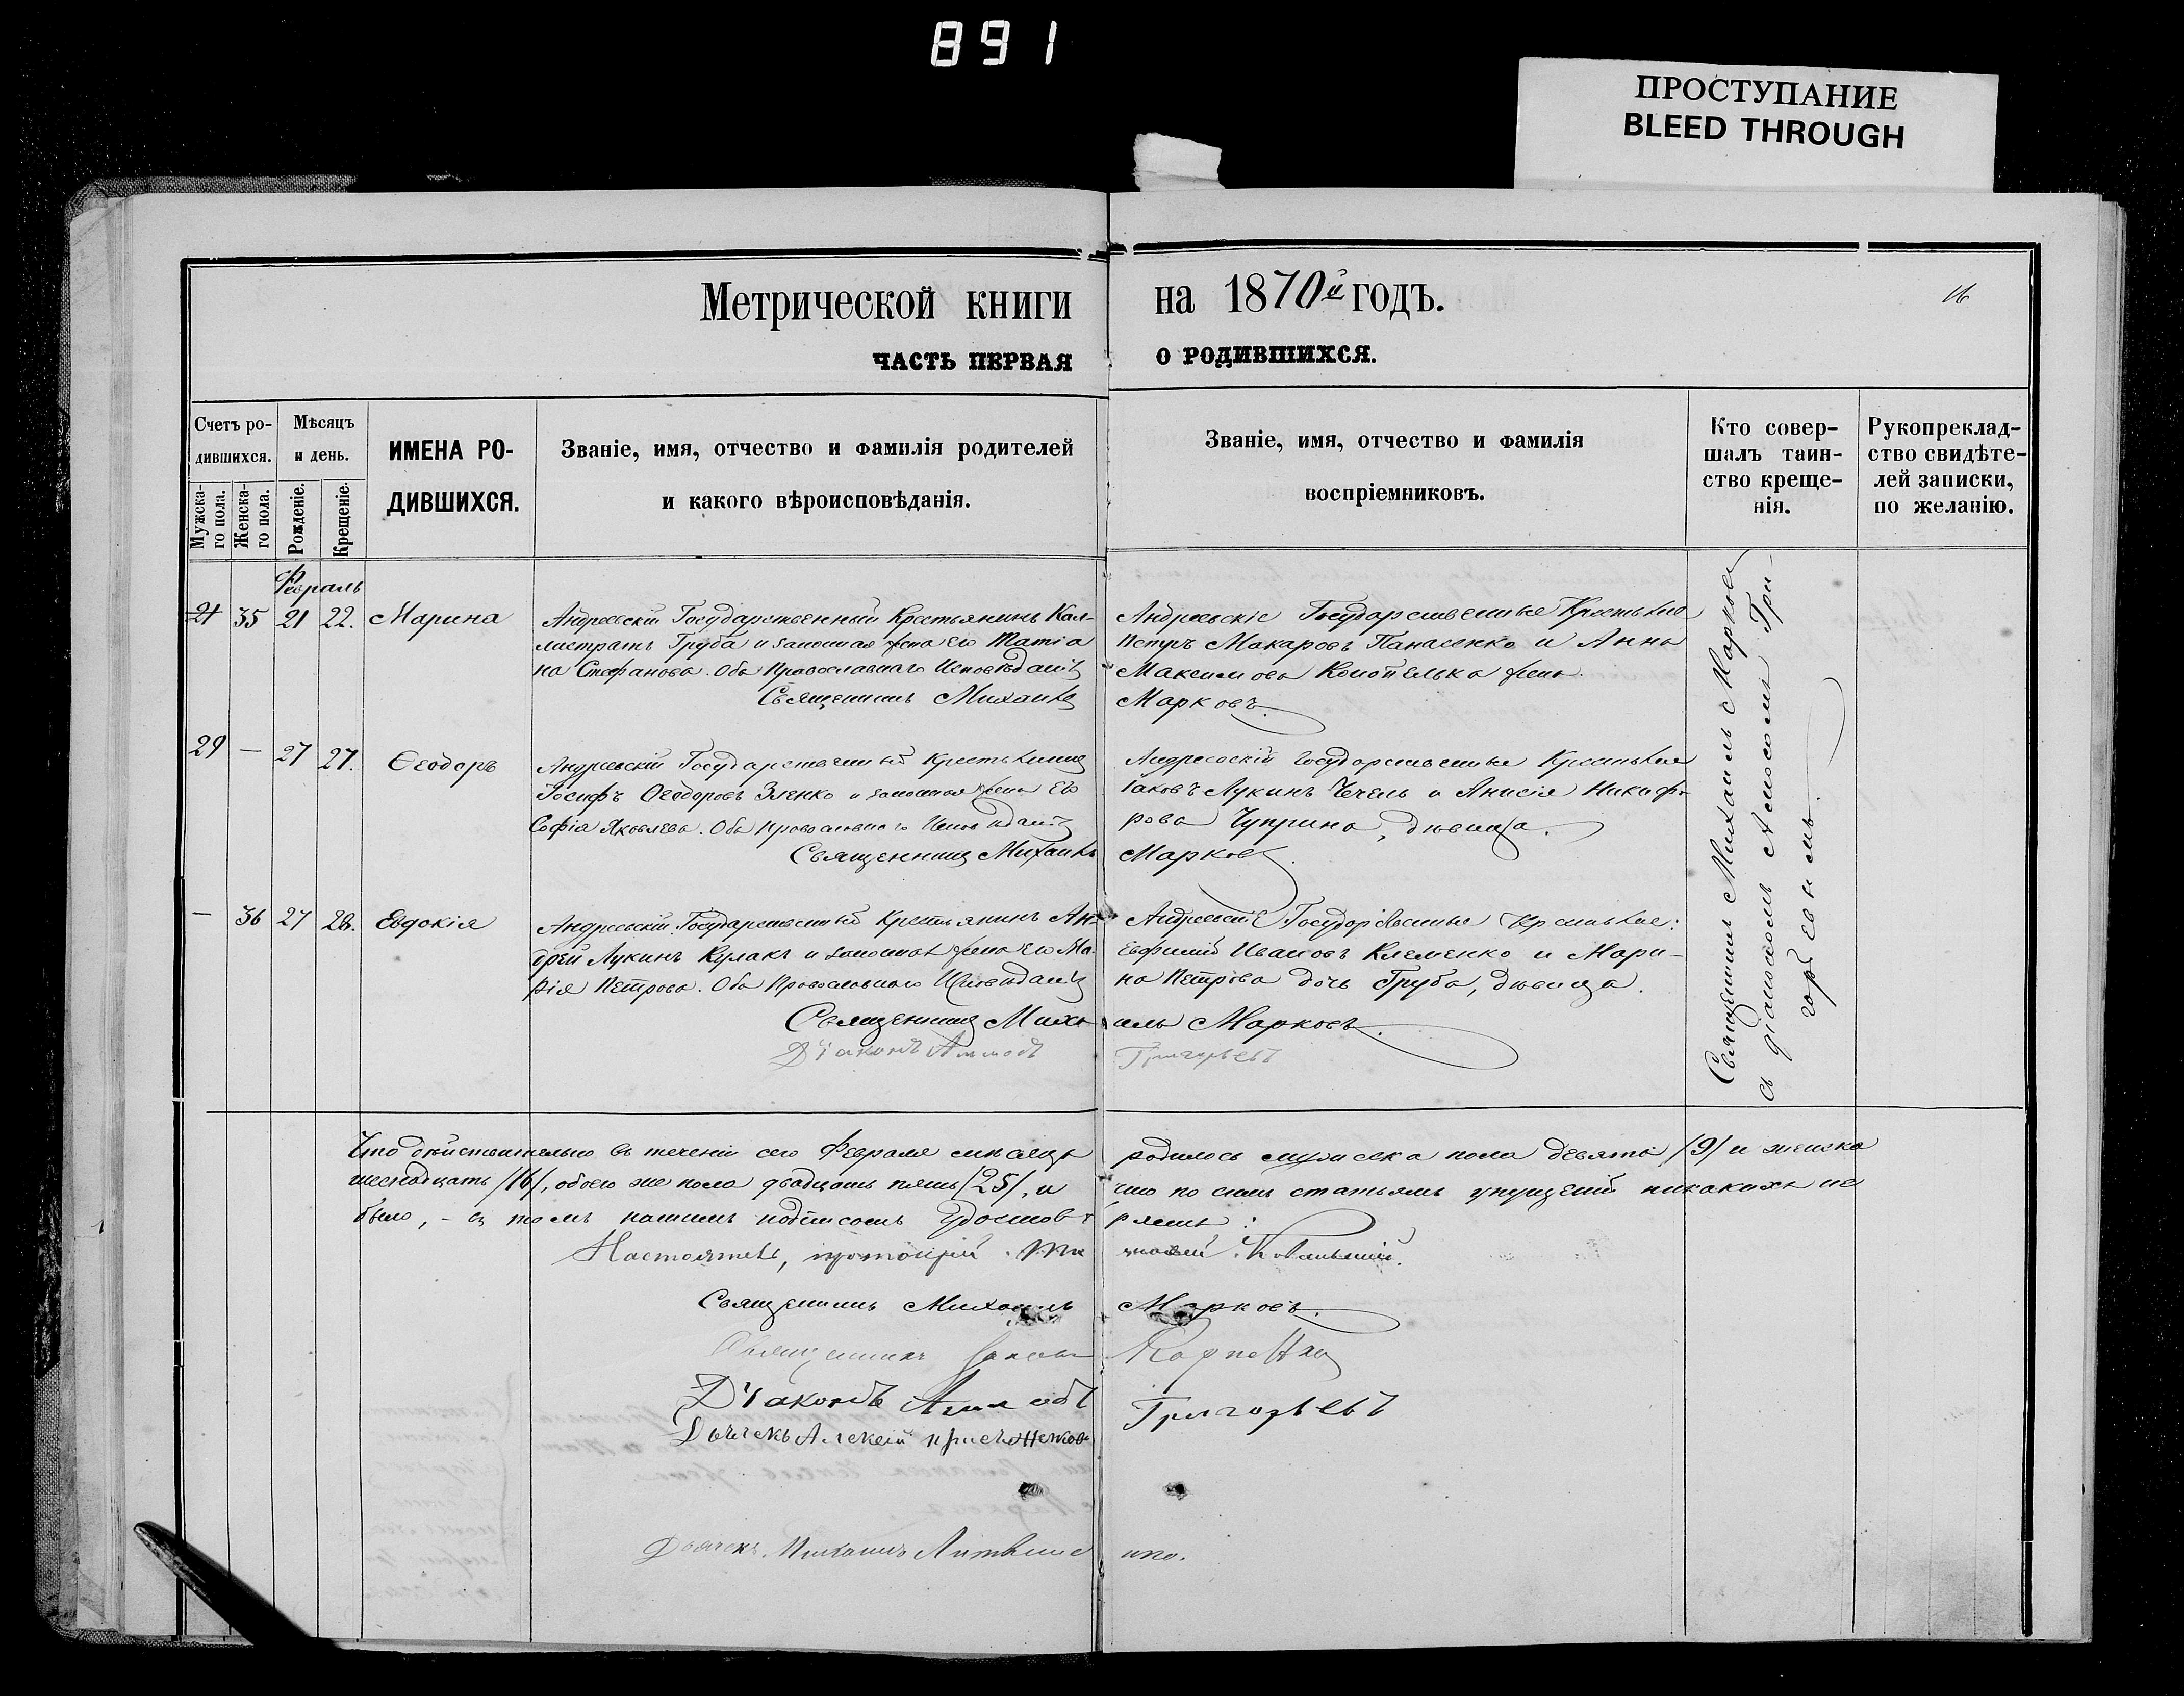 891
ПРОСТУПАНИЕ
BLEED THROUGH
Метрической книги на 1870й годъ.
16
ЧАСТЬ ПЕРВАЯ О РОДИВШИХСЯ.
Счетъ ро-
дившихся.
Мужска-
го пола.
Женска-
го пола.
Мѣсяцъ
и день.
Рожденіе.
Крещеніе.
ИМЕНА РО-
ДИВШИХСЯ.
Званіе, имя, отчество и фамилія родителей
и какого вѣроисповѣданія.
Званіе, имя, отчество и фамилія
воспріемниковъ.
Кто совер-
шалъ таин-
ство креще-
нія.
Рукопреклад-
ство свидѣте-
лей записки,
по желанію.
Февраль
21 35 21 22. Марина
Андреевскій Государственный Крестьянинъ Кал-
листратъ Груба и законная жена его Татіа
на Стефанова. Оба Православнаго Исповѣданія
Священникъ Михаилъ
Андреевскіе Государственные Крестьяне
Петръ Макаровъ Панасенко и Анна
Максимова Конопелька жена.
Марковъ.
29 — 27 27. Ѳеодоръ
Андреевскій Государственный Крестьянинъ
Іосифъ Ѳеодоровъ Зленко и законная жена его
Софія Яковлева. Оба Православнаго Исповѣданія
Священникъ Михаилъ
Андреевскіе Государственные Крестьяне
Іаковъ Лукинъ Чечель и Анисія Никифо
рова Чуприна, дѣвица.
Марковъ.
— 36 27 28. Евдокія
Андреевскій Государственный Крестьянинъ Ан-
дрей Лукинъ Кулакъ и законная жена его Ма-
рія Петрова. Оба Православнаго Исповѣданія
Священникъ Миха
Діаконъ Аммосъ
Андреевскіе Государственные Крестьяне:
Евфимій Ивановъ Клеменко и Мари-
на Петрова дочь Груба, дѣвица.
илъ Марковъ.
Григорьевъ
Священникъ Михаилъ Марковъ
съ діакономъ Амосомъ Гри-
горьевымъ.
Что дѣйствительно въ теченіи сего Февраля мѣсяца родилось мужеска пола девять /9/ и женска
шестнадцать /16/, обоего же пола двадцать пять /25/, и что по симъ статьямъ упущеній никакихъ не
было, – въ томъ нашимъ подписомъ удостовѣ ряемъ:
Настоятель, протоіерей
Священникъ Михаилъ Марковъ.
Священникъ
Діаконъ Аммосъ Григорьевъ
Дьячекъ Алексей
Дьячекъ Михаилъ Литвине нко.